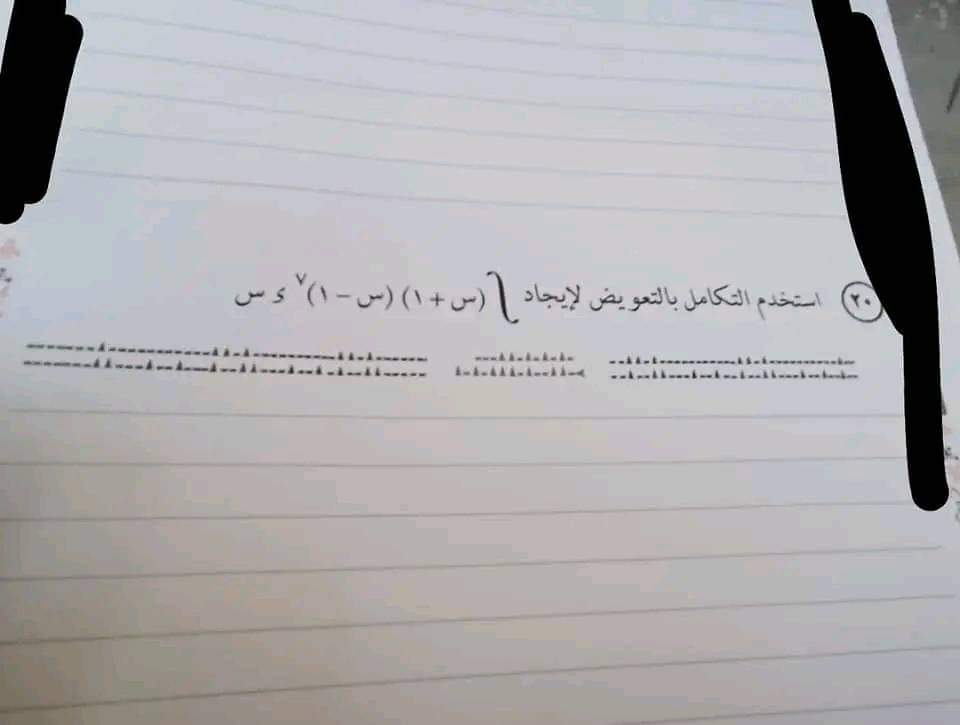 ٢٠ استخدم التكامل بالتعويض لإيجاد ∫ (س + ١) (س − ١)^٧ ء س